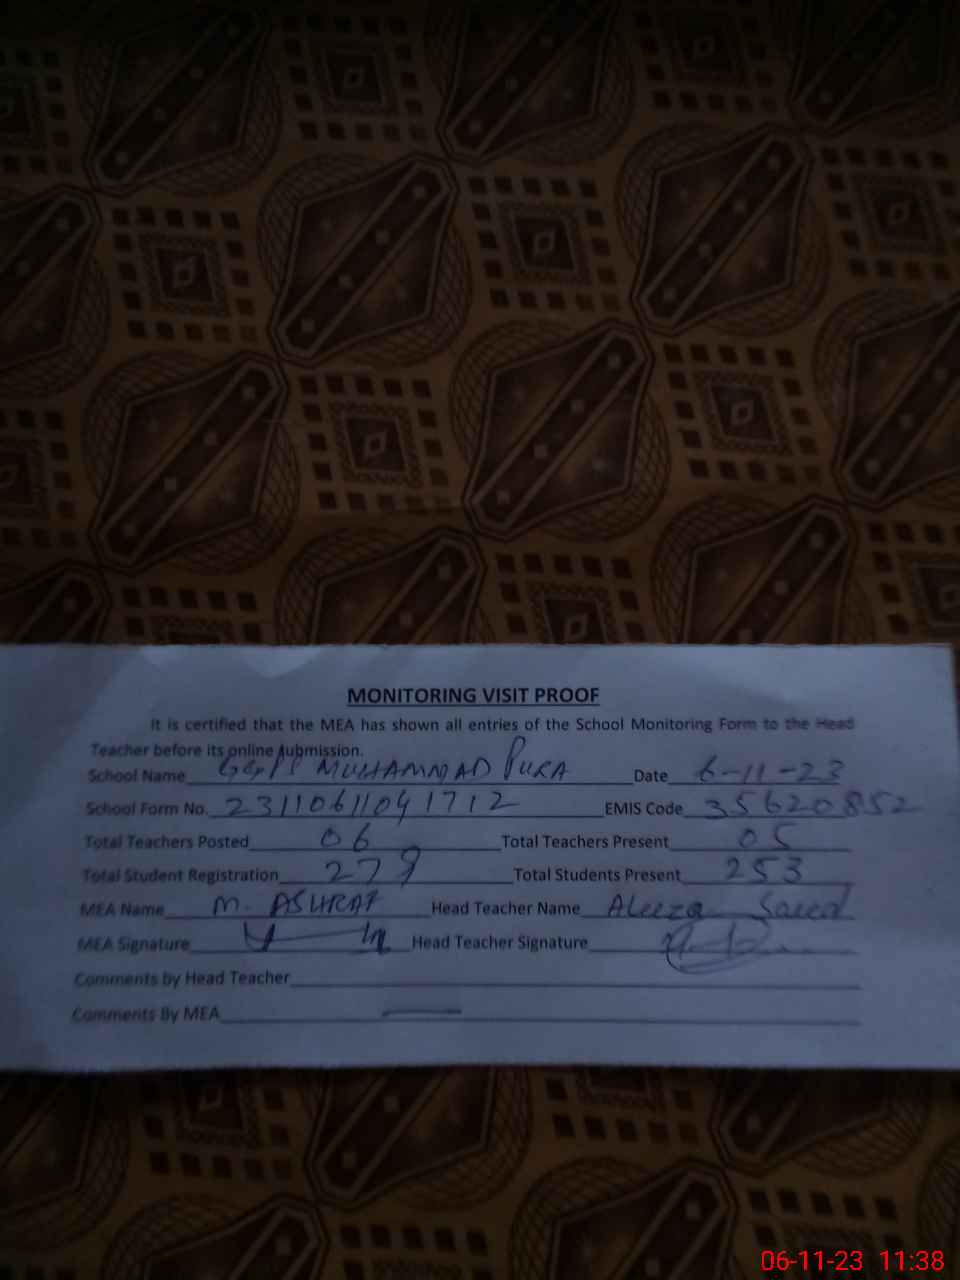 MONITORING VISIT PROOF
It is certified that the MEA has shown all entries of the School Monitoring Form to the Head
Teacher before its online submission.
School Name MUHAMMAD PURA Date 6-11-23
School Form No. 23110611041712 EMIS Code 35620852
Total Teachers Posted 06 Total Teachers Present 05
Total Student Registration 279 Total Students Present 253
MEA Name M. ASHRAF Head Teacher Name Aleeza Saeed
MEA Signature Head Teacher Signature
Comments by Head Teacher
Comments By MEA
06-11-23 11:38